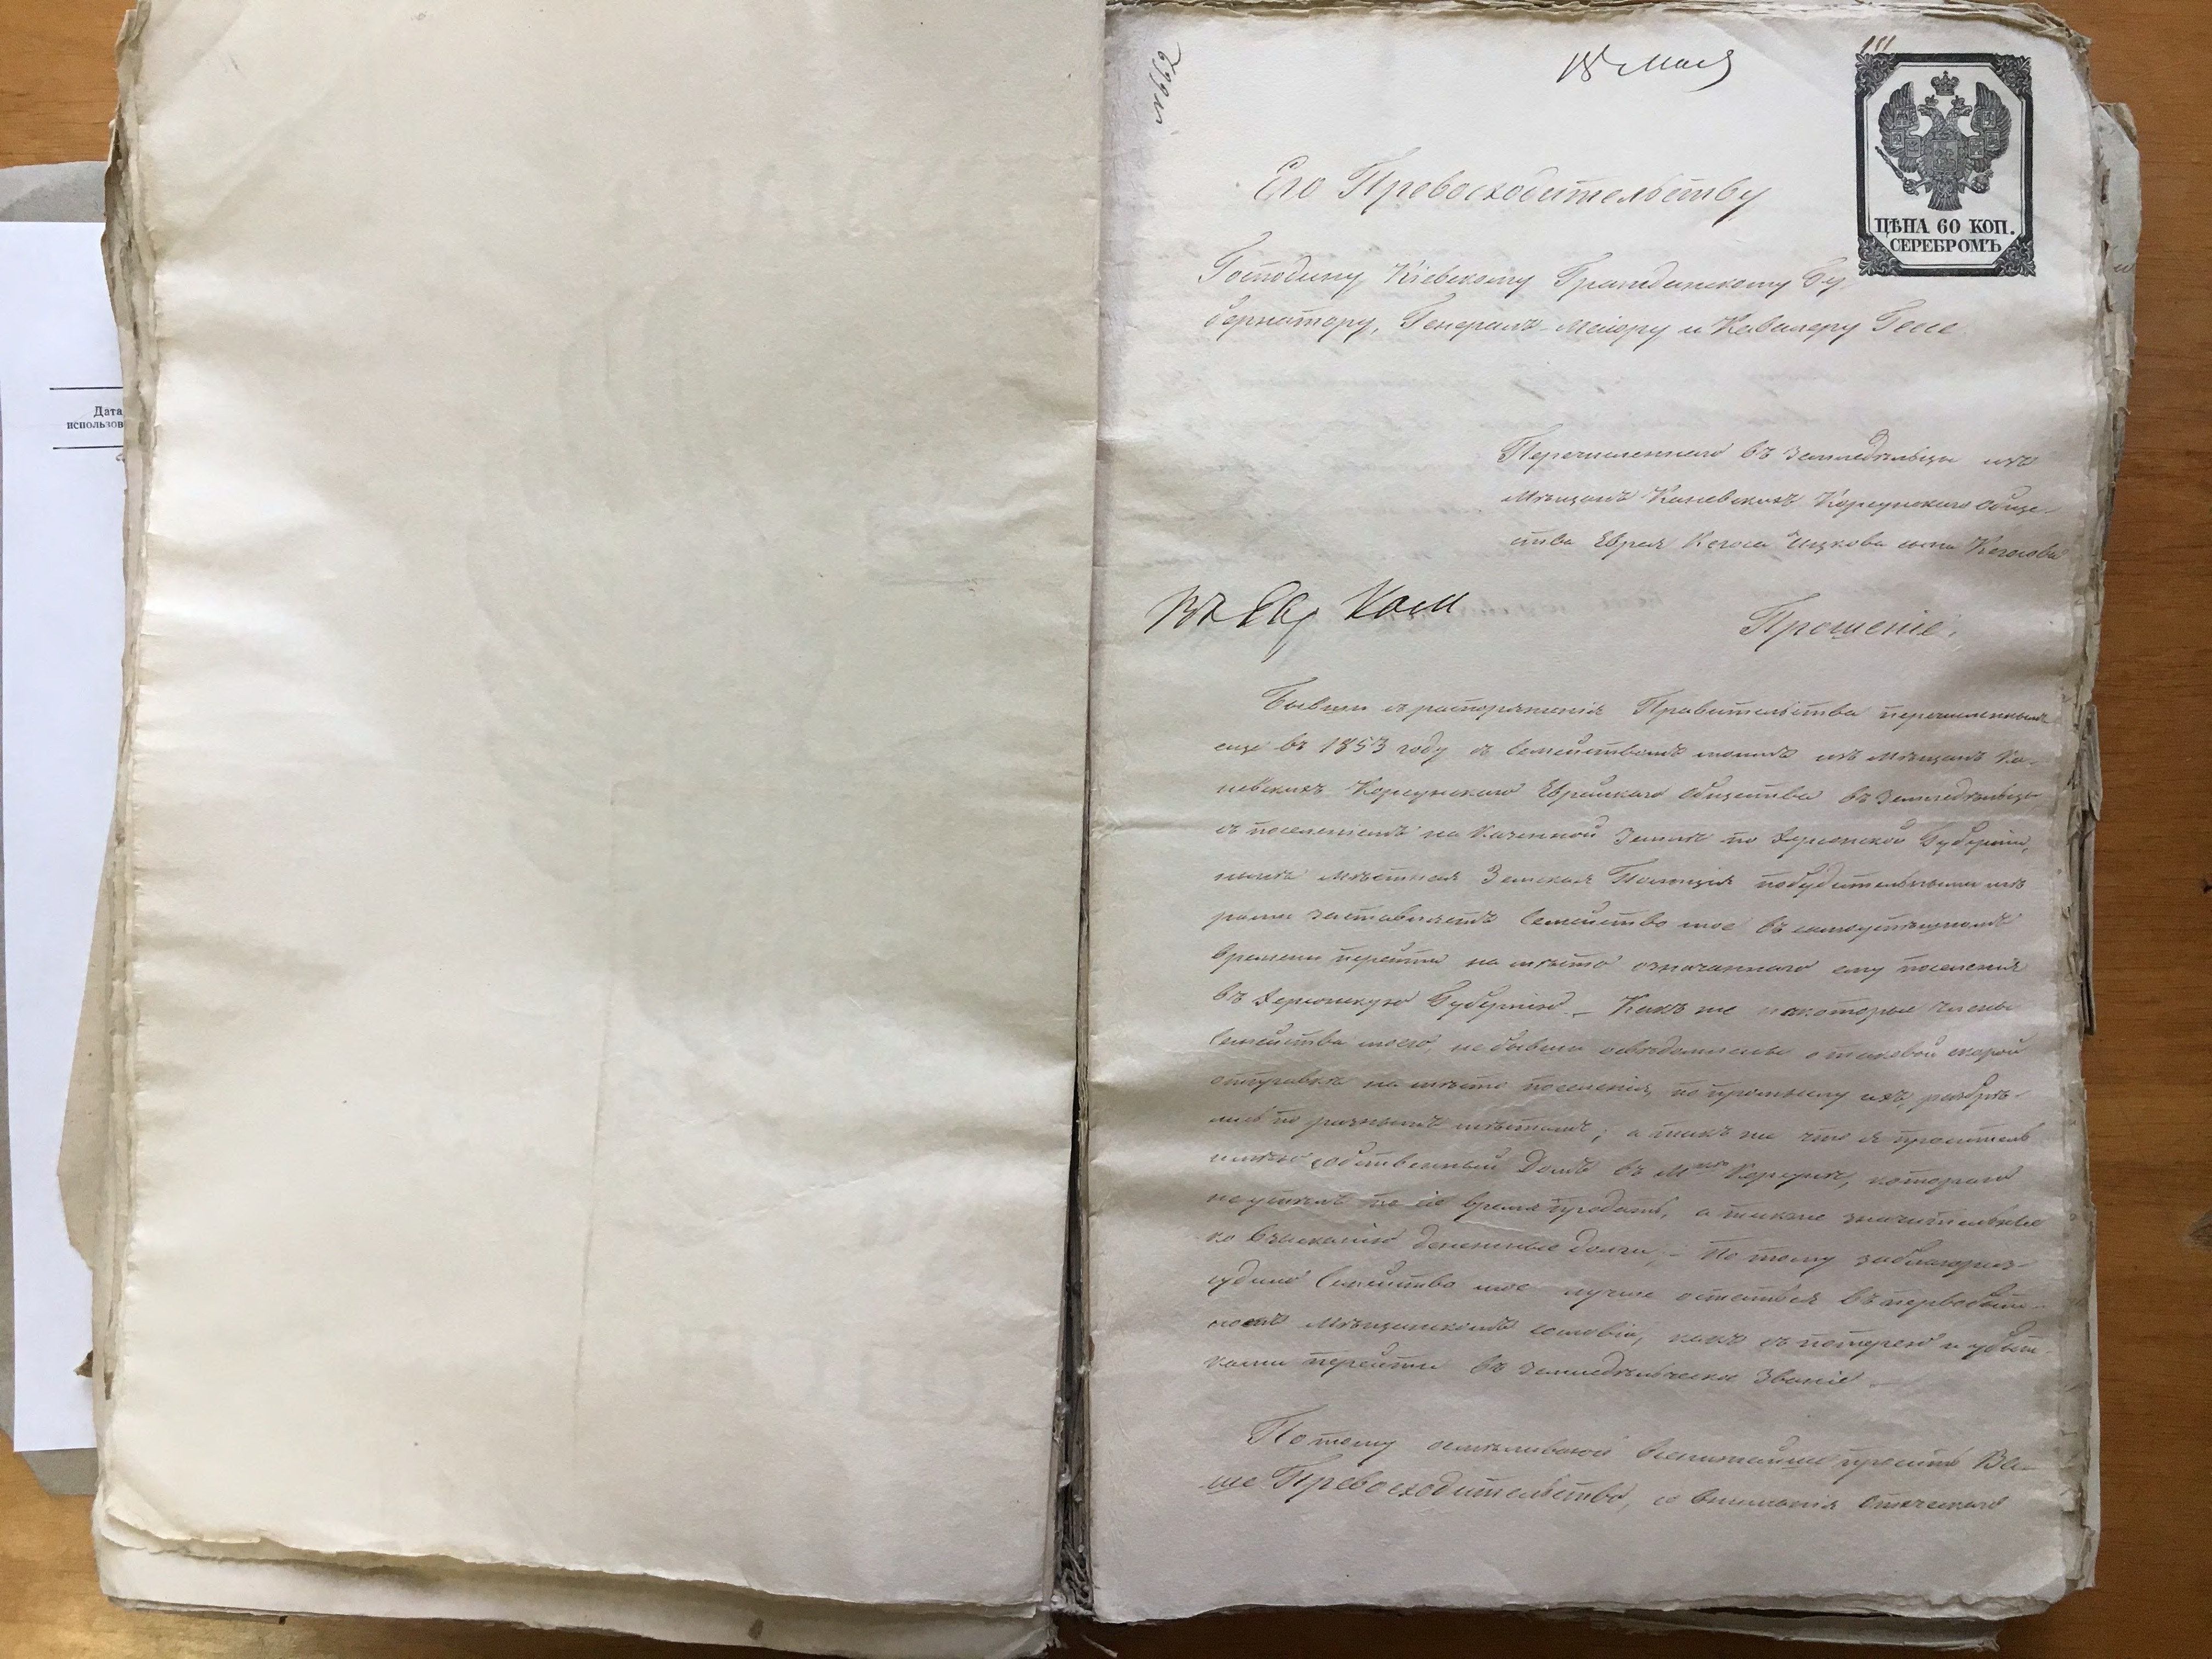 Дата
использов
№ 662
18 Мая
111
ЦѢНА 60 КОП.
СЕРЕБРОМЪ
Его Превосходительству
Господину Кіевскому Гражданскому Гу-
бернатору, Генералъ-Маіору и Кавалеру Гессе
Перечисленнаго въ земледѣльцы изъ
мѣщанъ Каневскихъ Корсунскаго обще-
ства Еврея Ицкова сына
Въ Евр Ком
Прошеніе.
Бывши с распоряженія Правительства перечисленнымъ
еще въ 1853 году съ Семействомъ моимъ изъ мѣщанъ Ка-
невскихъ Корсунскаго Еврейскаго общества въ земледѣльцы
съ поселеніемъ на Казенной Землѣ по Херсонской Губерніи,
нынѣ мѣстная Земская Полиція побудительными мѣ
рами заставляетъ Семейство мое въ
времени перейти на мѣсто означеннаго ему поселенія
въ Херсонскую Губернію. – Какъ же нѣкоторые члены
Семейства моего, не бывши освѣдомлены о таковой скорой
отправкѣ на мѣсто поселенія, по промыслу ихъ,
лись по разнымъ мѣстамъ; а такъ же что я проситель
имѣю собственный Домъ въ М. Корсунѣ, котораго
не успѣлъ по сіе время продать, а также значительные
ко взысканію денежные долги; – По тому заблагораз-
судило Семейство мое лучше остаться въ первобыт-
номъ мѣщанскомъ сословіи, какъ съ потерею и убыт-
ками перейти въ земледѣльческое званіе –
По тому осмѣливаюсь всенижайше просить Ва-
ше Превосходительство, со вниманія